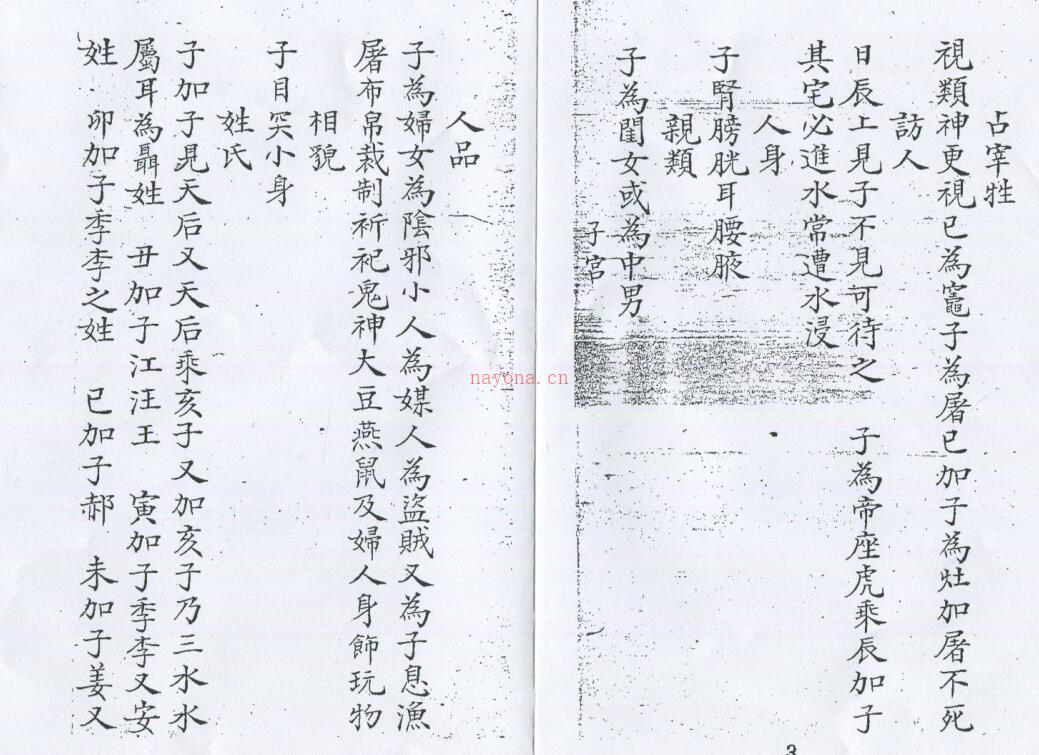 占宰牲
視類神更視巳為竈子為屠巳加子為灶加屠不死
訪人
日辰上見子不見可待之 子為帝座虎乘辰加子
其宅必進水常遭水浸
人身
子腎膀胱耳腰腋
親類
子為閨女或為中男
子宮
3
人品
子為婦女為陰邪小人為媒人為盜賊又為子息漁
屠布帛裁制祈祀鬼神大豆燕鼠及婦人身飾玩物
相貌
子目突小身
姓氏
子加子見天后又天后乘亥子又加亥子乃三水水
屬耳為聶姓 丑加子江汪王 寅加子季李又安
姓 卯加子季李之姓 巳加子郝 未加子姜又
nayona.cn